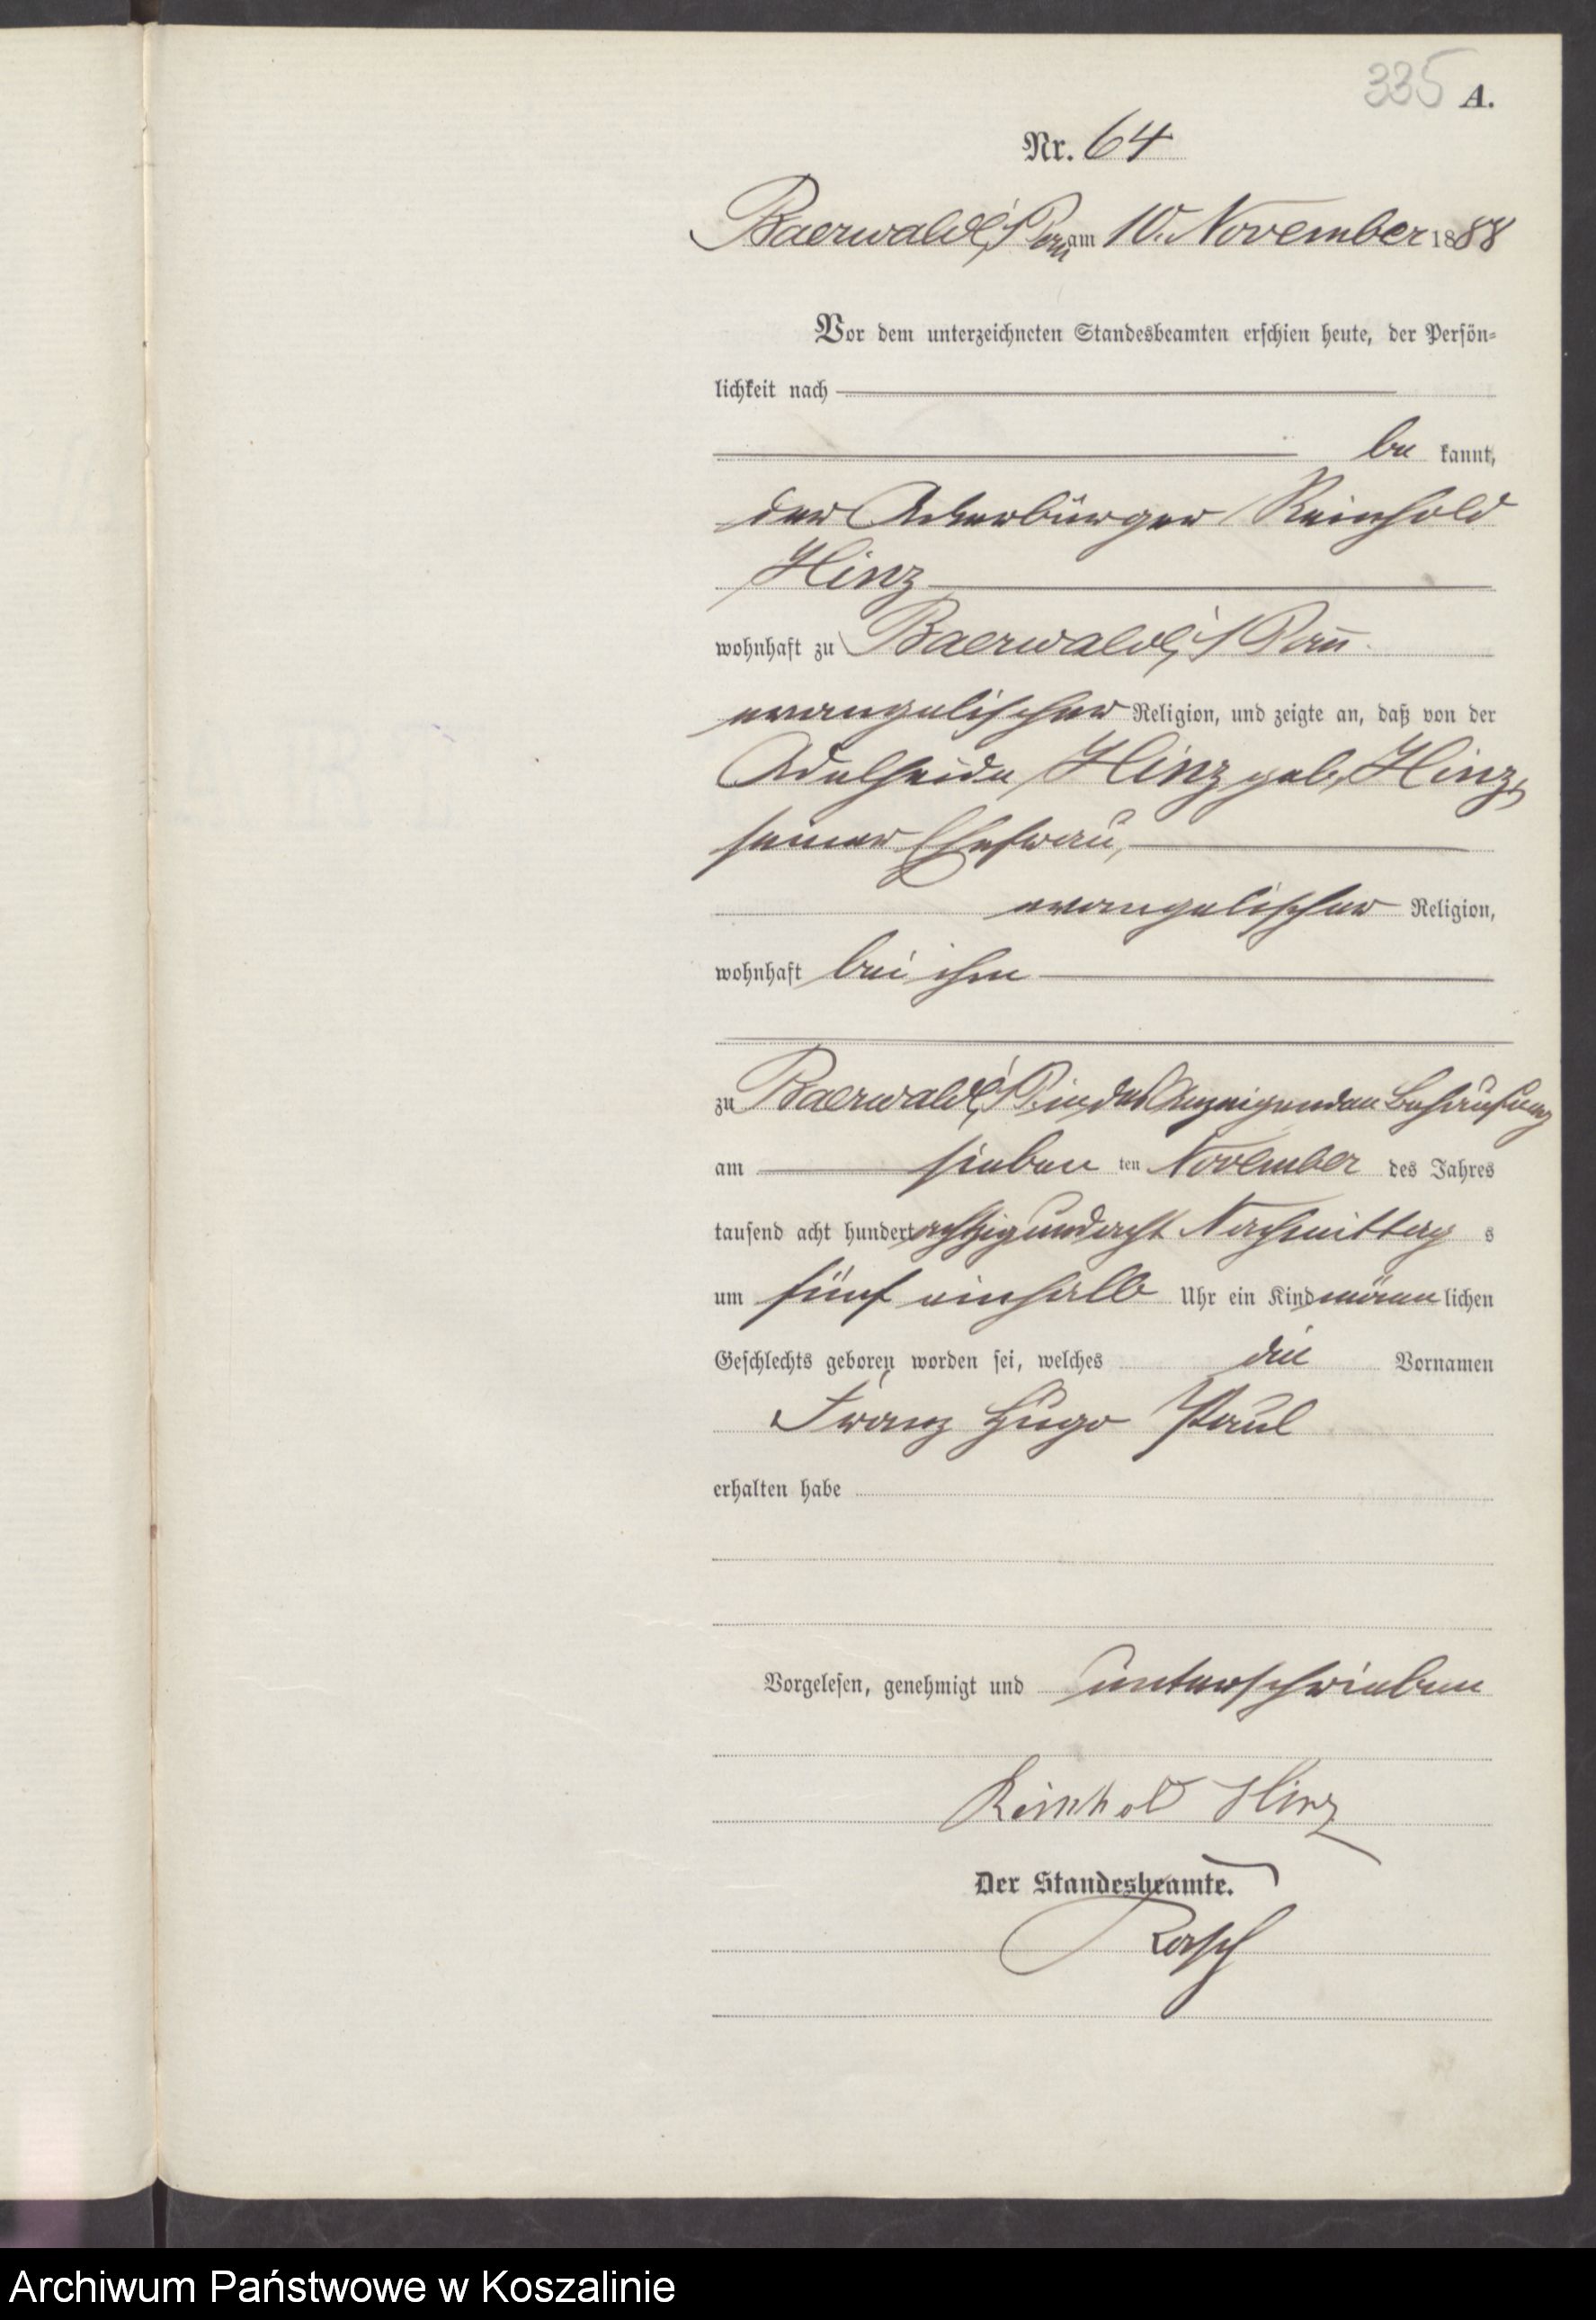 335 A.
Nr. 64
Baerwalde i/Pom am 10. November 1888
Vor dem unterzeichneten Standesbeamten erschien heute, der Persön-
lichkeit nach
be kannt,
der Ackerbürger Reinhold
Hinz
wohnhaft zu Baerwalde i/Pom.
evangelischer Religion, und zeigte an, daß von der
Adelheide Hinz geb. Hinz,
seiner Ehefrau,
evangelischer Religion,
wohnhaft bei ihm
zu Baerwalde i/P. in des Anzeigenden Behausung
am sieben ten November des Jahres
tausend acht hundert achtzig und acht Nachmittag s
um fünf einhalb Uhr ein Kind männ lichen
Geschlechts geboren worden sei, welches die Vornamen
Franz Hugo Paul
erhalten habe
Vorgelesen, genehmigt und unterschrieben
Reinhold Hinz
Der Standesbeamte.
Archiwum Państwowe w Koszalinie